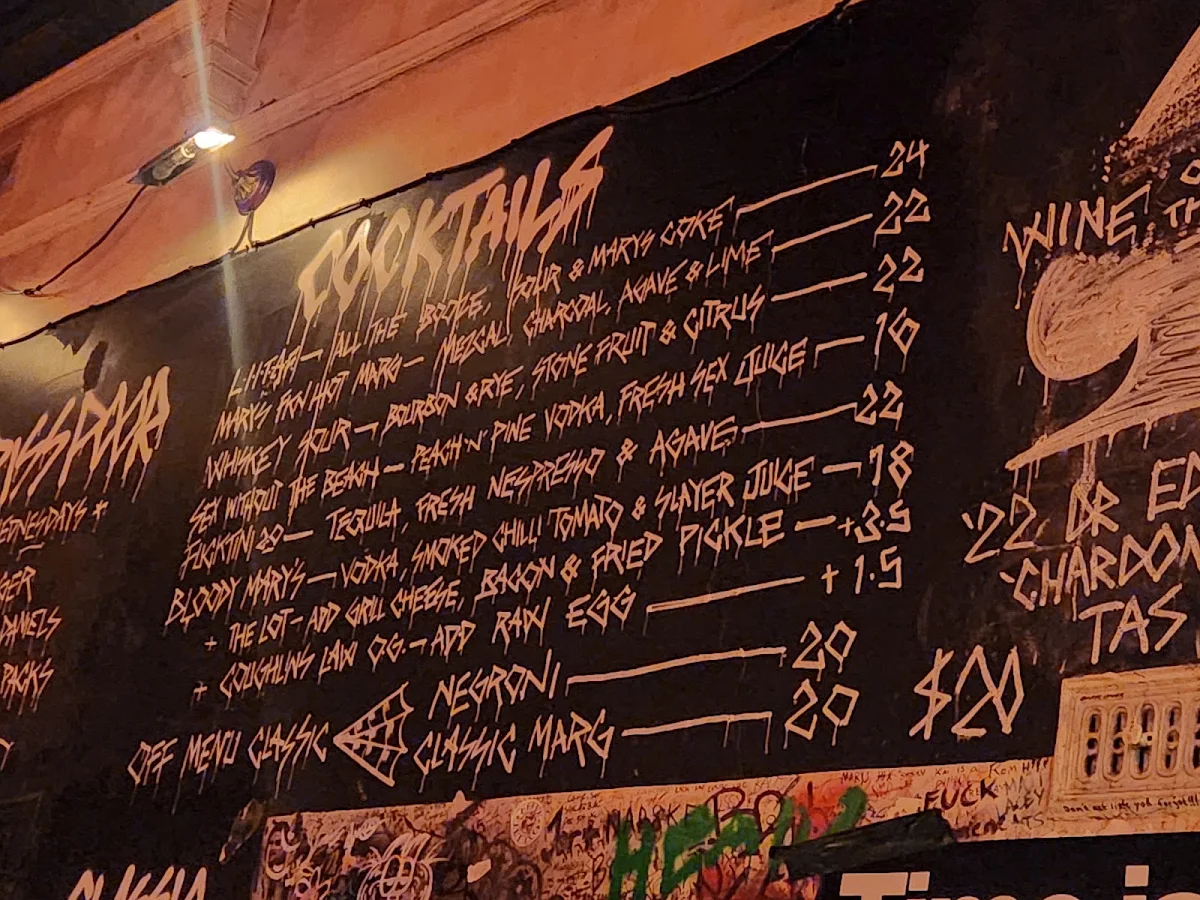 COCKTAILS
L.I.I.TEA — ALL THE BOOZE, SOUR & MARYS COKE — 24
MARYS FKN HOT MARG — MEZCAL, CHARCOAL, AGAVE & LIME — 22
WHISKEY SOUR — BOURBON & RYE, STONE FRUIT & CITRUS — 22
SEX WITHOUT THE BEACH — PEACH 'N' PINE VODKA, FRESH SEX JUICE — 16
FUCKTINI 2.0 — TEQUILA, FRESH NESPRESSO & AGAVE — 22
BLOODY MARY'S — VODKA, SMOKED CHILLI TOMATO & SLAYER JUICE — 18
+ THE LOT - ADD GRILL CHEESE, BACON & FRIED PICKLE — +3.5
+ COUGHLINS LAW OG. — ADD RAW EGG — +1.5
OFF MENU CLASSIC
NEGRONI — 20
CLASSIC MARG — 20
DANIELS
PACKS
WINE
'22 DR
TAS
$20
HEAVY
FUCK
Time is